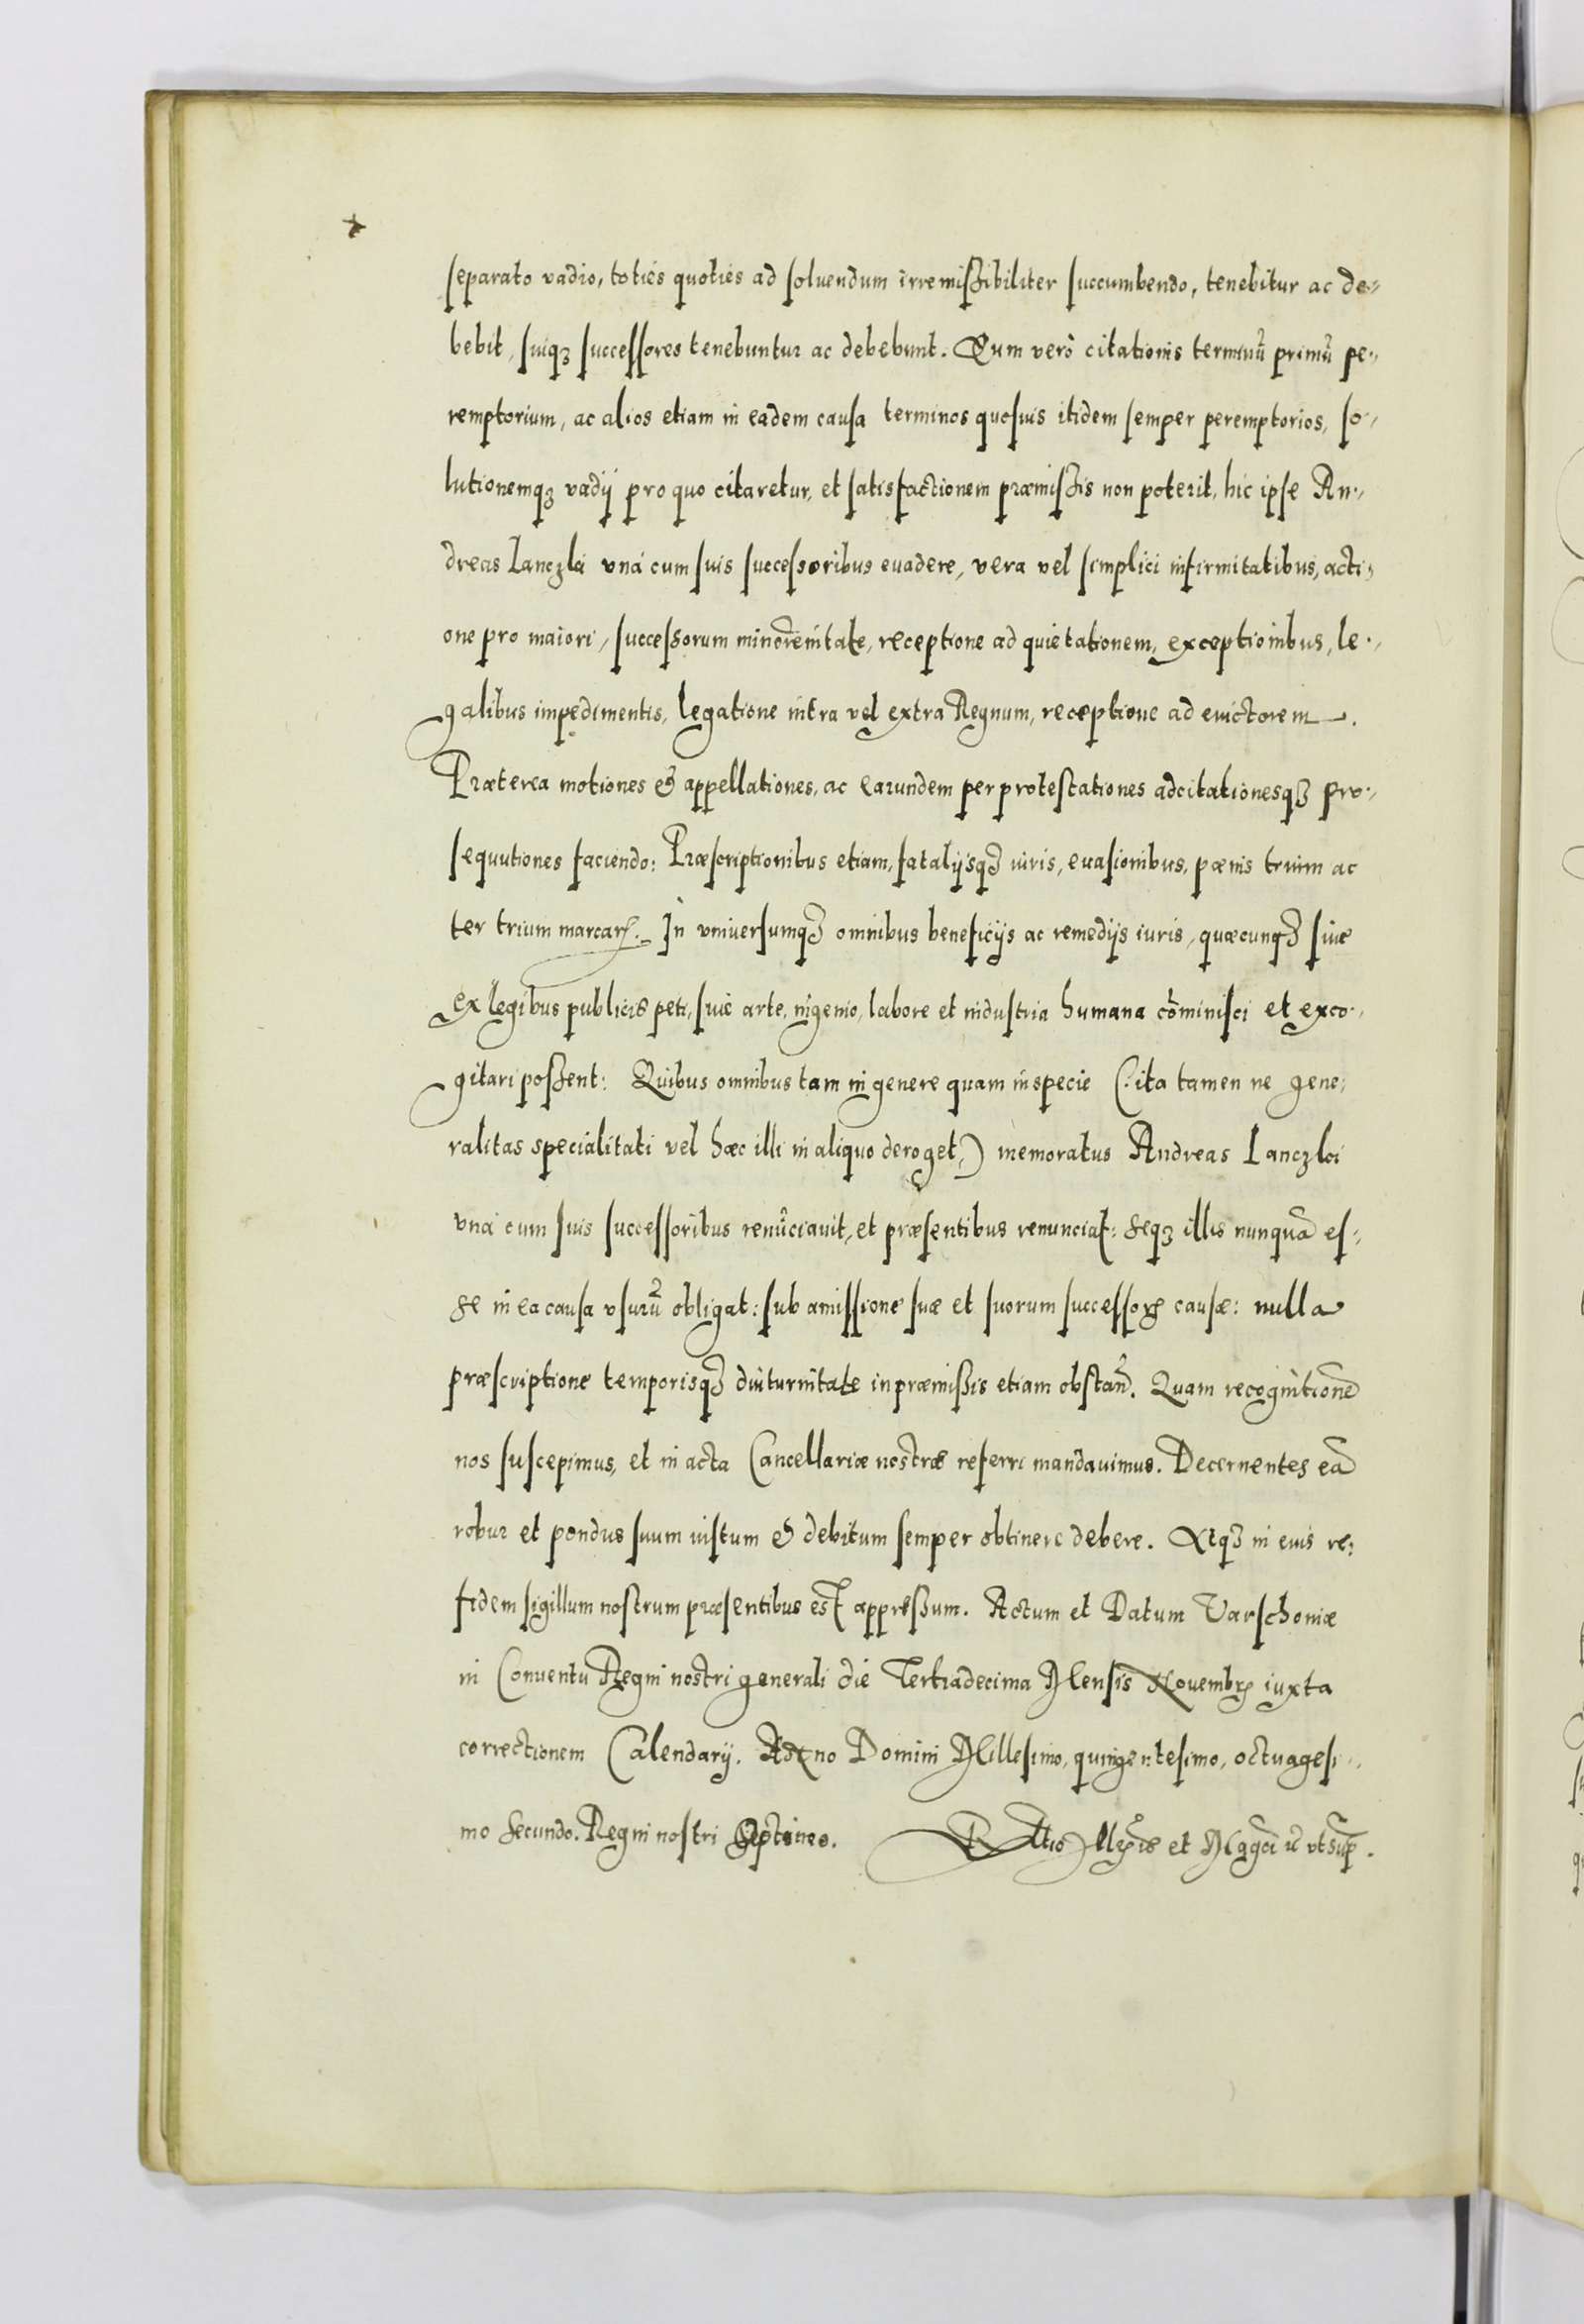 separato vadio, toties quoties ad soluendum irremissibiliter succumbendo, tenebitur ac de-
bebit, suiqȝ successores tenebuntur ac debebunt. Eum verò citationis terminū primū pe-
remptorium, ac alios etiam in eadem causa terminos quosuis itidem semper peremptorios, so-
lutionemqȝ vadij pro quo citaretur, et satisfactionem præmissis non poterit, hic ipse An-
dreas Lanczki vná cum suis successoribus euadere, vera vel simplici infirmitatibus, acti-
one pro maiori, successorum minorēnitate, receptione ad quietationem, exceptionibus, le-
galibus impedimentis, legatione intra vel extra Regnum, receptione ad euictorem.
Præterea motiones & appellationes, ac earundem per protestationes adcitationesqȝ pro-
sequutiones faciendo: Præscriptionibus etiam, fatalijsqȝ iuris, euasionibus, pœnis trium ac
ter trium marcarꝝ. In vniuersumqȝ omnibus beneficijs ac remedijs iuris, quæcunqȝ siue
ex legibus publicis peti, siue arte, ingenio, labore et industria humana cōminisci et exco-
gitari possent: Quibus omnibus tam in genere quam in specie (: ita tamen ne gene-
ralitas specialitati vel hæc illi in aliquo deroget,) memoratus Andreas Lanczki
vná cum suis successoribus renūciauit, et præsentibus renunciat: seqȝ illis nunquā es-
se in ea causa vsurū obligat: sub amissione suæ et suorum successorꝝ causæ: nulla
præscriptione temporisqȝ diuturnitate in præmissis etiam obstan̄. Quam recognitionē
nos suscepimus, et in acta Cancellariæ nostræ referri mandauimus. Decernentes eā
robur et pondus suum iustum & debitum semper obtinere debere. Atqȝ in eius re-
fidem sigillum nostrum præsentibus est appressum. Actum et Datum Varschouiæ
in Conuentu Regni nostri generali die Tertiadecima Mensis Nouembrꝭ iuxta
correctionem Calendarij. Anno Domini Millesimo, quingentesimo, octuagesi-
mo secundo. Regni nostri Septimo. et vt sup̄.